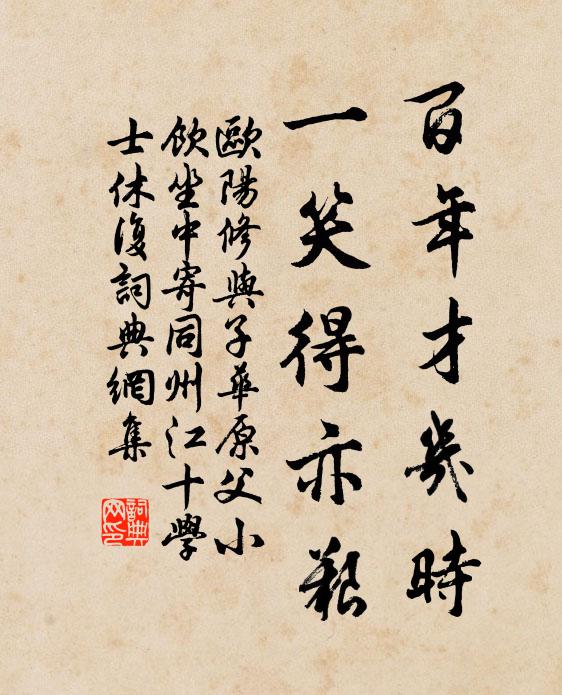 百年才幾時
一笑得亦艱
歐陽修與子華原父小
飲坐中寄同州江十學
士休復詞典網集
詞典
网印